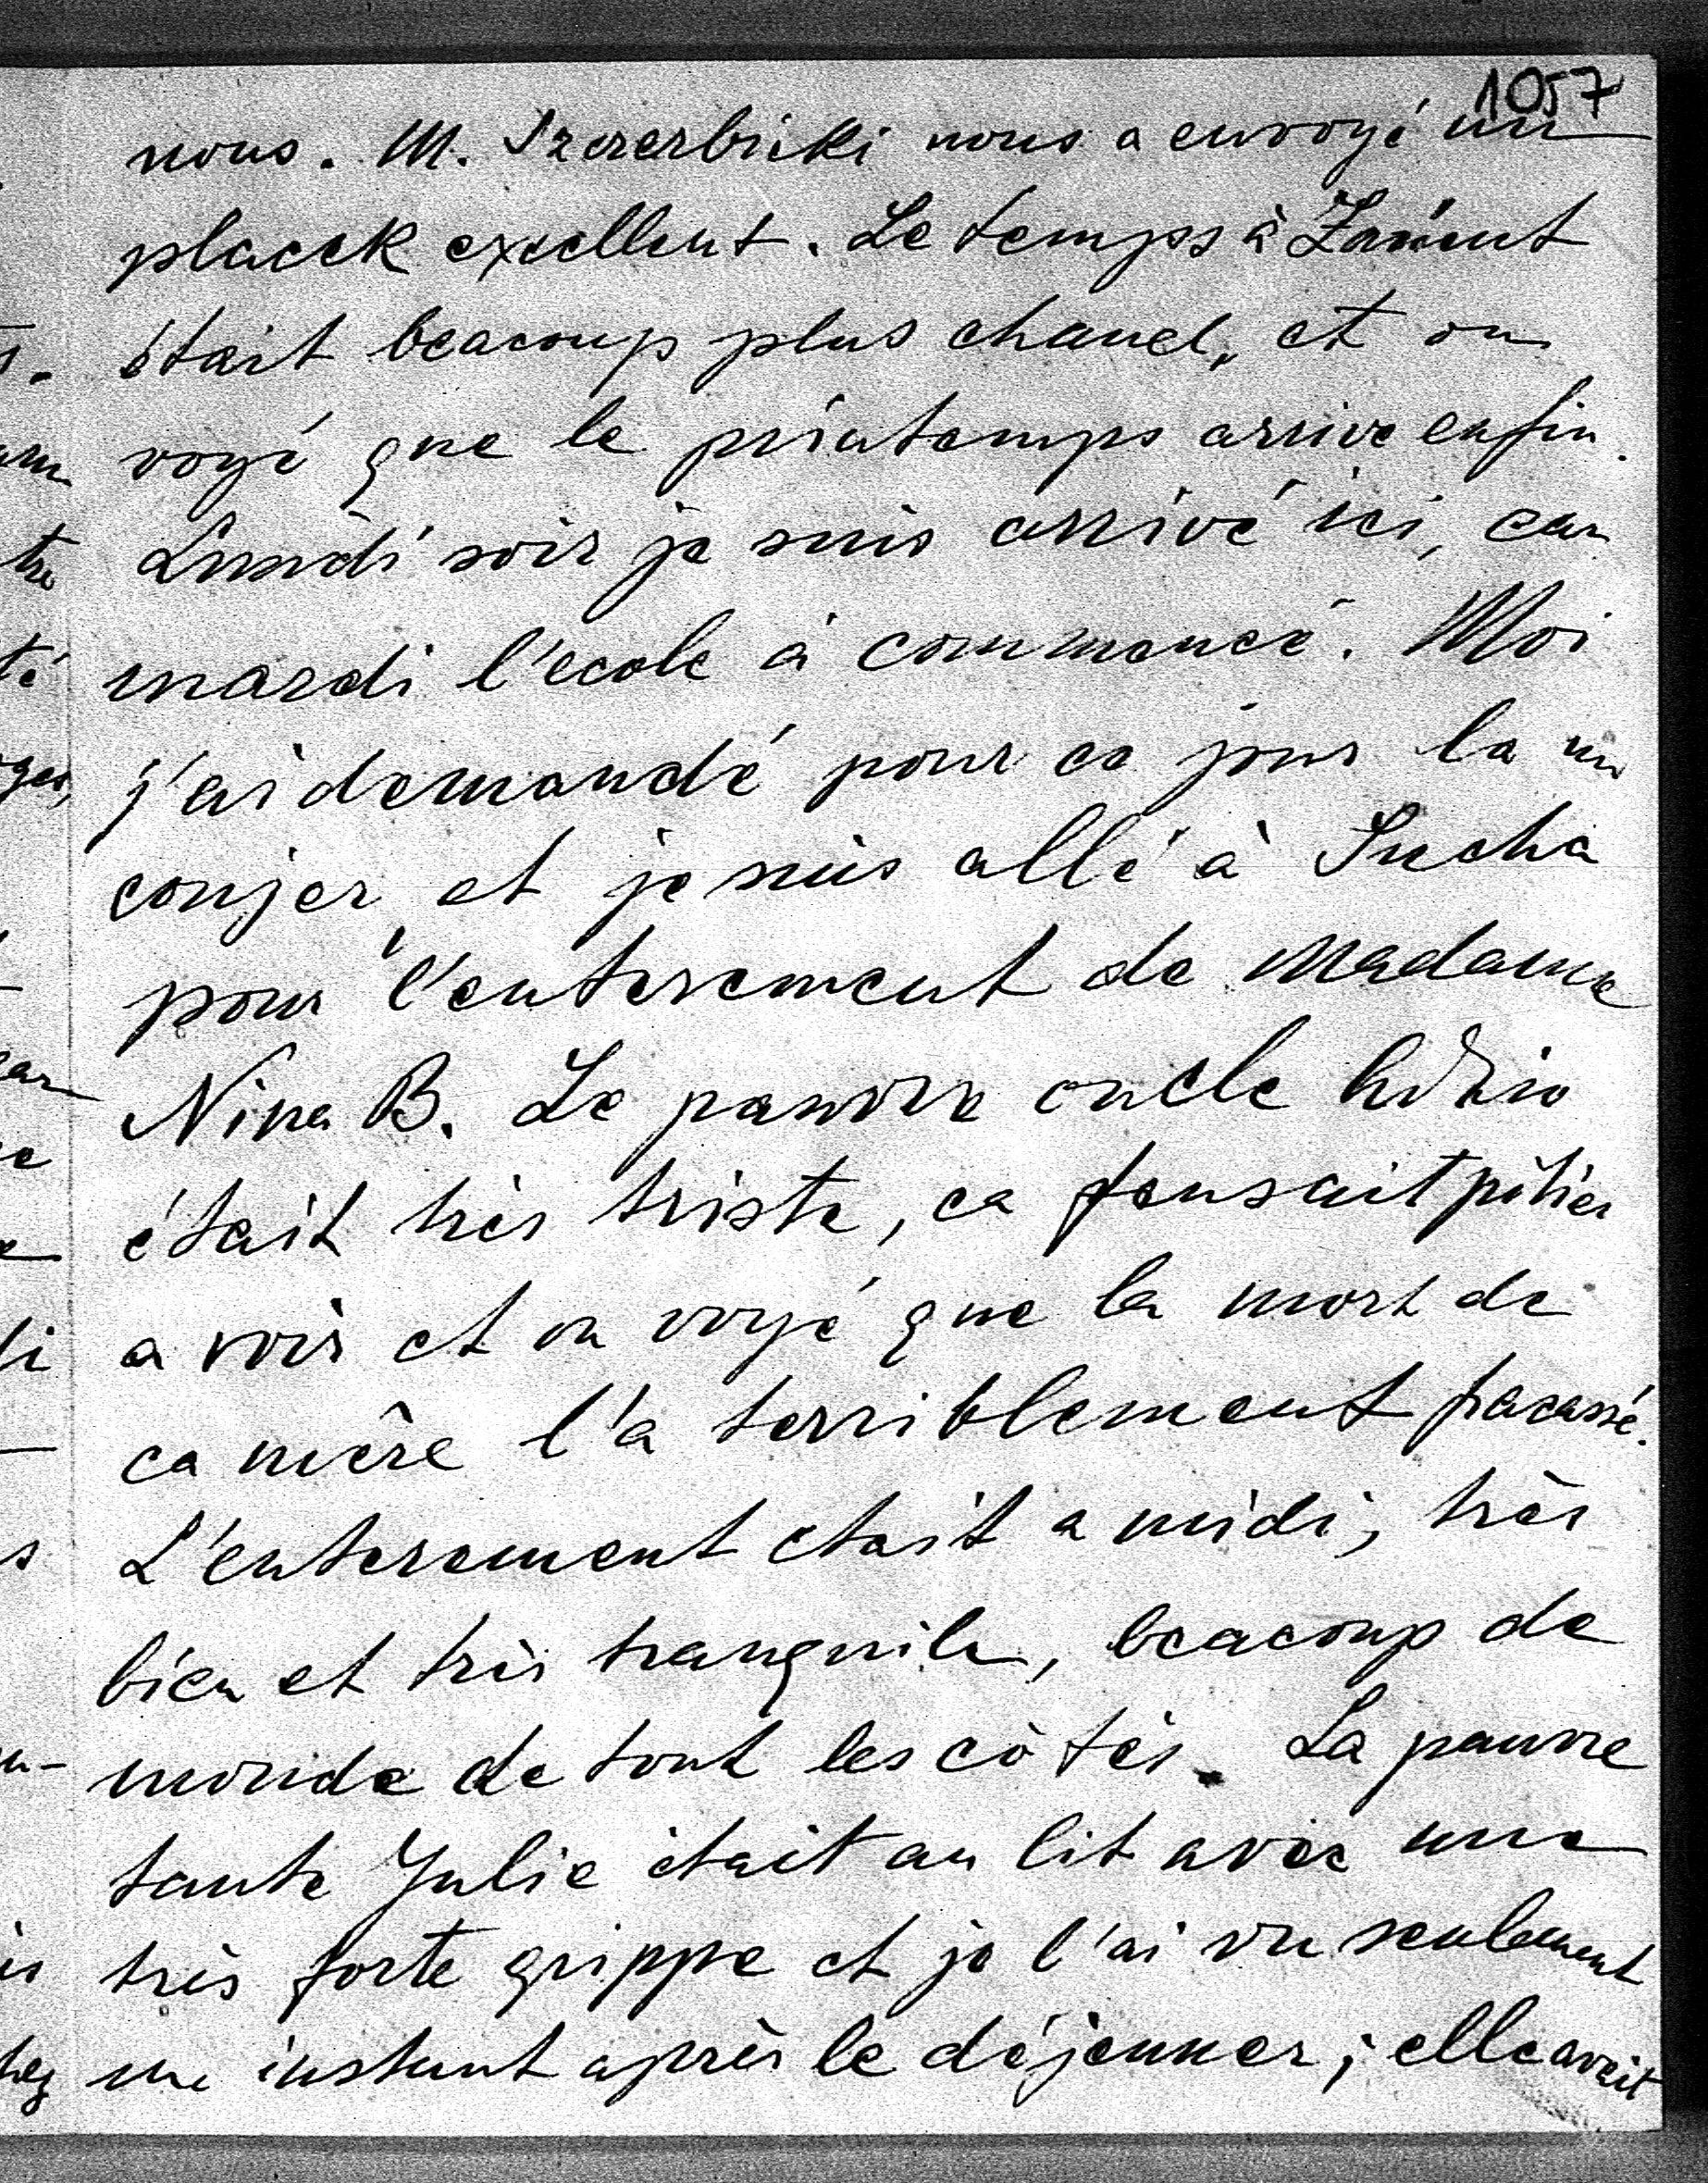 1057
nous. M. Szczerbicki nous a envoyé un
placek exellent. Le temps à Łańcut
était beacoup plus chaud, et on
voyé que le printemps arrive enfin.
Lundi soir je suis arrivé ici, car
mardi l'ecole à commencé. Moi
j'ai demandé pour ce jour la un
conjer et je suis allé à Sucha
pour l'enterement de Madame
Nina B. Le pauvre oncle
était très triste, ca faisait pitier
a voir et on voyé que la mort de
ca mère l'a terriblement fracassé.
L'enterement etait a midi, très
bien et très tranquile, beacoup de
monde de tout les côtés. La pauvre
tante Julie était au lit avec une
très forte grippe et je l'ai vu seulement
un instant après le déjeunner; elle avait